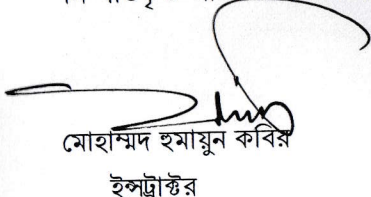 মোহাম্মদ হুমায়ুন কবির
ইন্সট্রাক্টর